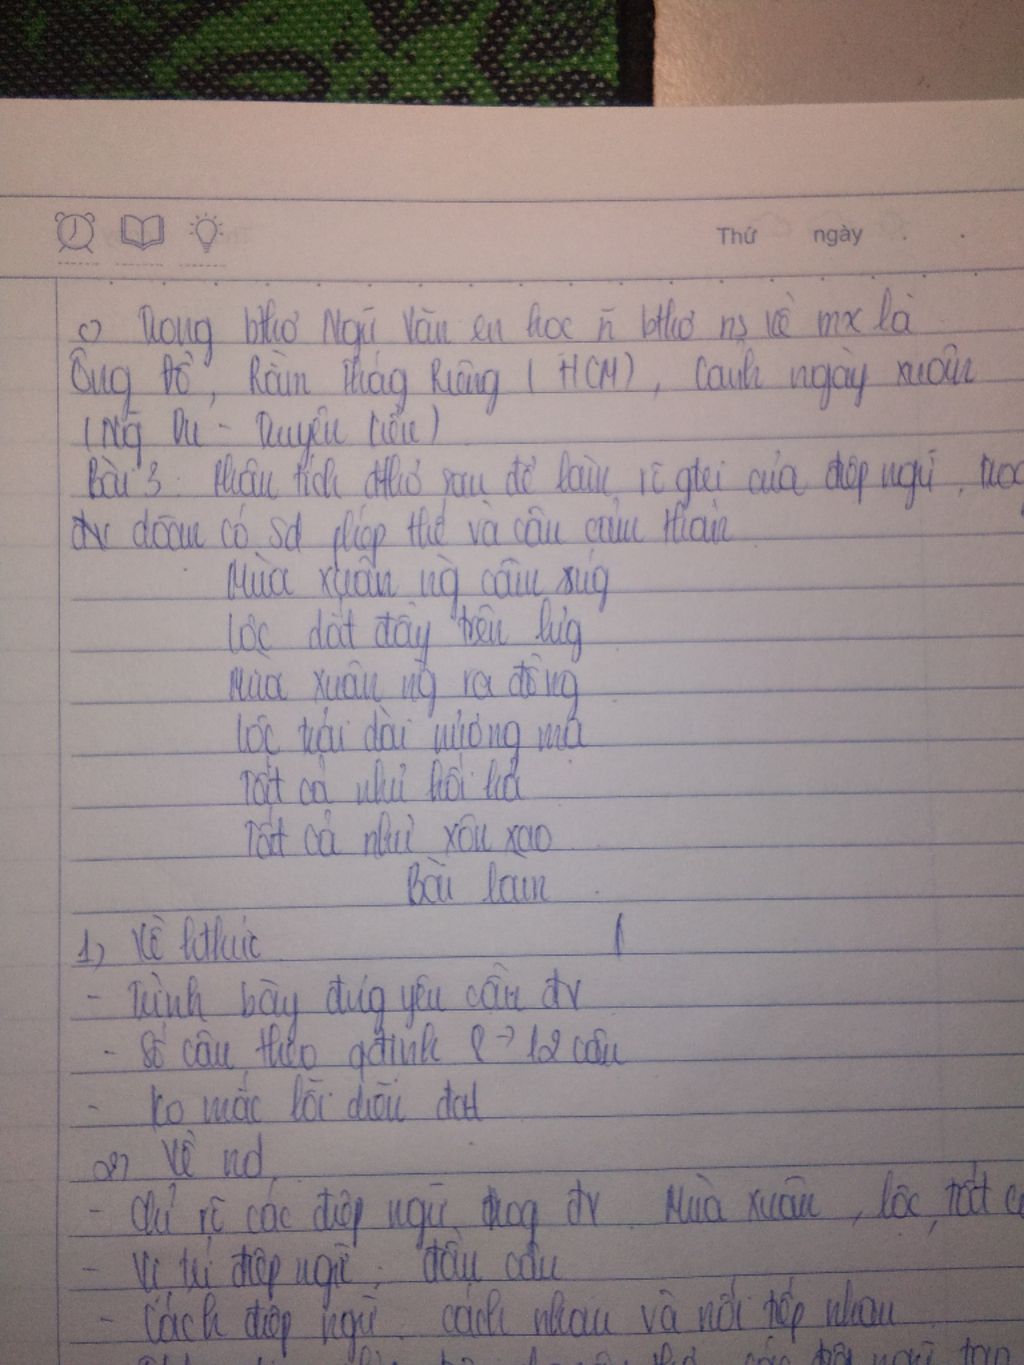 Thứ ngày
c) Trong bthơ Ngữ Văn em học ~n bthơ ns về mx là
Ông Đồ, Rằm thág Riêng (HCM), Cảnh ngày xuân
(Ng Du - Truyện Kiều)
Bài 3: Phân tích đthơ sau để làm rõ gtrị của điệp ngữ. Trog
đv đoạn có sd phép thế và câu cảm thán
Mùa xuân ng cầm súg
Lộc dắt đầy trên lưg
Mùa xuân ng ra đồng
Lộc trải dài nương mạ
Tất cả như hối hả
Tất cả như xôn xao
Bài làm
1) Về hthức
- Trình bày đúg yêu cầu đv
- Số câu theo qđịnh 8 → 12 câu
- Ko mắc lỗi diễn đạt
2) Về nd
- Chỉ rõ các điệp ngữ trog đv: Mùa xuân, lộc, tất cả
- Vị trí điệp ngữ: đầu câu
- Cách điệp ngữ: cách nhau và nối tiếp nhau